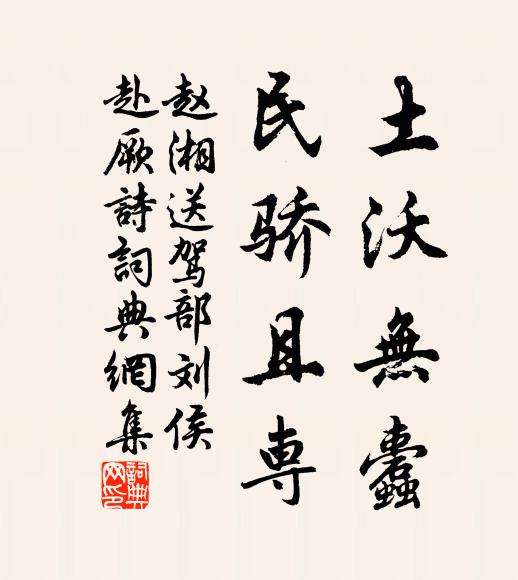 土沃無蠹
民骄且専
赵湘送駕部刘侯
赴厥詩詞典網集
詞典网印